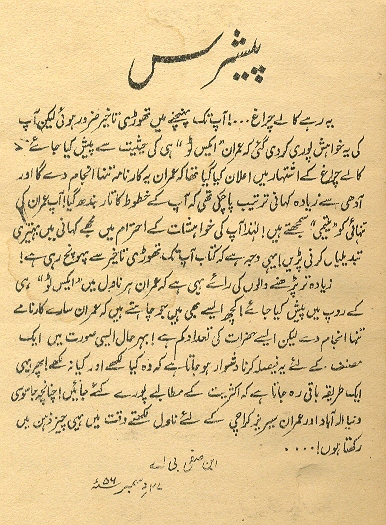 پیشرس
یہ رہے کالے چراغ ...! آپ تک پہنچنے میں تھوڑی تاخیر ضرور ہوئی لیکن آپ
کی یہ خواہش پوری کر دی گئی کہ عمران "ایکس ٹو" ہی کی حیثیت سے پیش کیا جائے۔
کالے چراغ کے اشتہار میں اعلان کیا گیا تھا کہ عمران یہ کارنامہ تنہا انجام دے گا اور
آدھی سے زیادہ کہانی ترتیب پا چکی تھی کہ آپ کے خطوط کا تار بندھ گیا! آپ عمران کی
تنہائی کو "یتیمی" سمجھتے ہیں! لہٰذا آپ کی خواہشات کے احترام میں مجھے کہانی میں بہتیری
تبدیلیاں کرنی پڑیں! یہی وجہ ہے کہ کتاب آپ تک تھوڑی تاخیر سے پہونچ رہی ہے!
زیادہ تر پڑھنے والوں کی رائے یہی ہے کہ عمران ہر ناول میں "ایکس ٹو" ہی
کے روپ میں پیش کیا جائے! کچھ ایسے بھی ہیں جو چاہتے ہیں کہ عمران سارے کارنامے
تنہا انجام دے لیکن ایسے حضرات کی تعداد کم ہے! بہرحال ایسی صورت میں ایک
مصنف کے لئے یہ فیصلہ کرنا دشوار ہو جاتا ہے کہ وہ کیا لکھے اور کیا نہ لکھے! پھر یہی
ایک طریقہ باقی رہ جاتا ہے کہ اکثریت کے مطالبے پورے کئے جائیں! چنانچہ جاسوسی
دنیا الہ آباد اور عمران سیریز کراچی کے لئے ناول لکھتے وقت میں یہی چیز ذہن میں
رکھتا ہوں! ....
ابن صفی بی اے
۲۷ دسمبر ۵۶ء